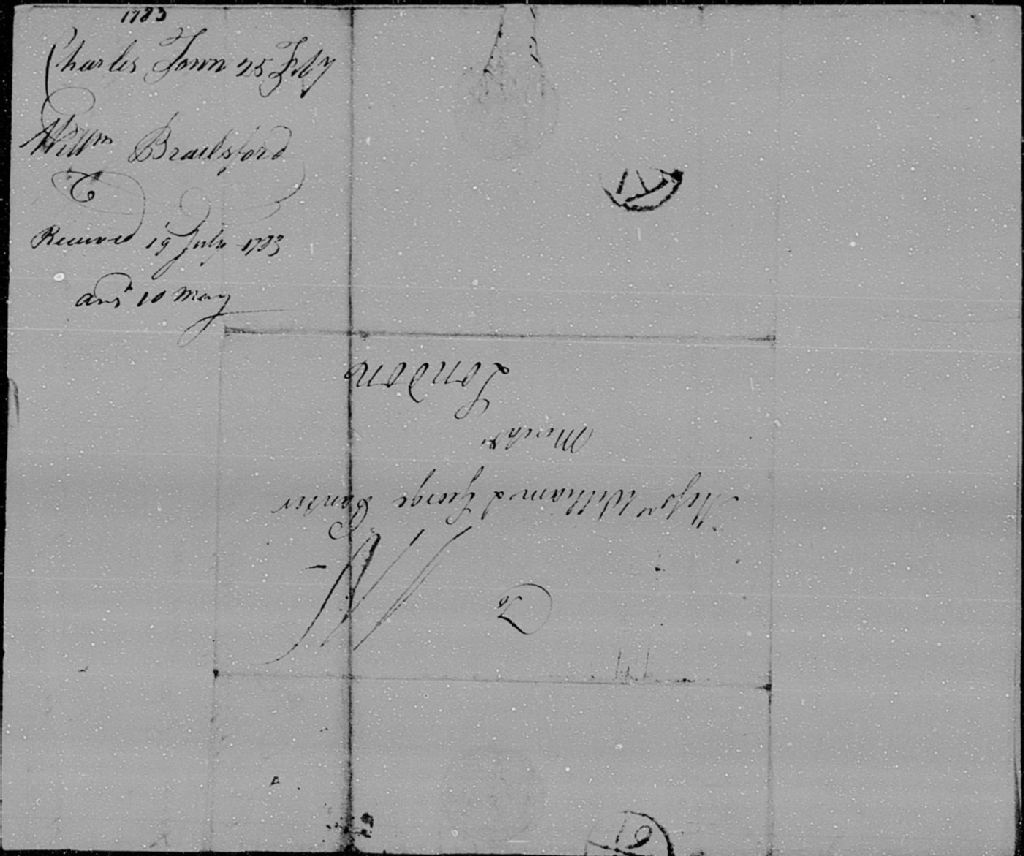 1783
Charles Town 25 Feby
Willm Brailsford
Received 19 July 1783
ansd 10 May
To
Messrs William & George
Merchts
London
19